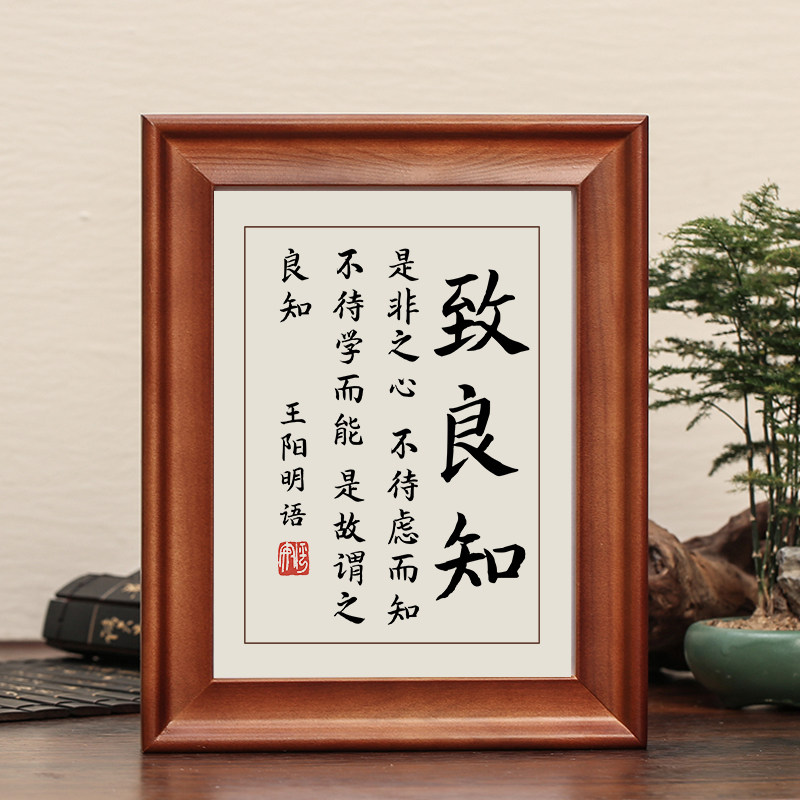 致良知
是非之心 不待虑而知
不待学而能 是故谓之
良知 王阳明语